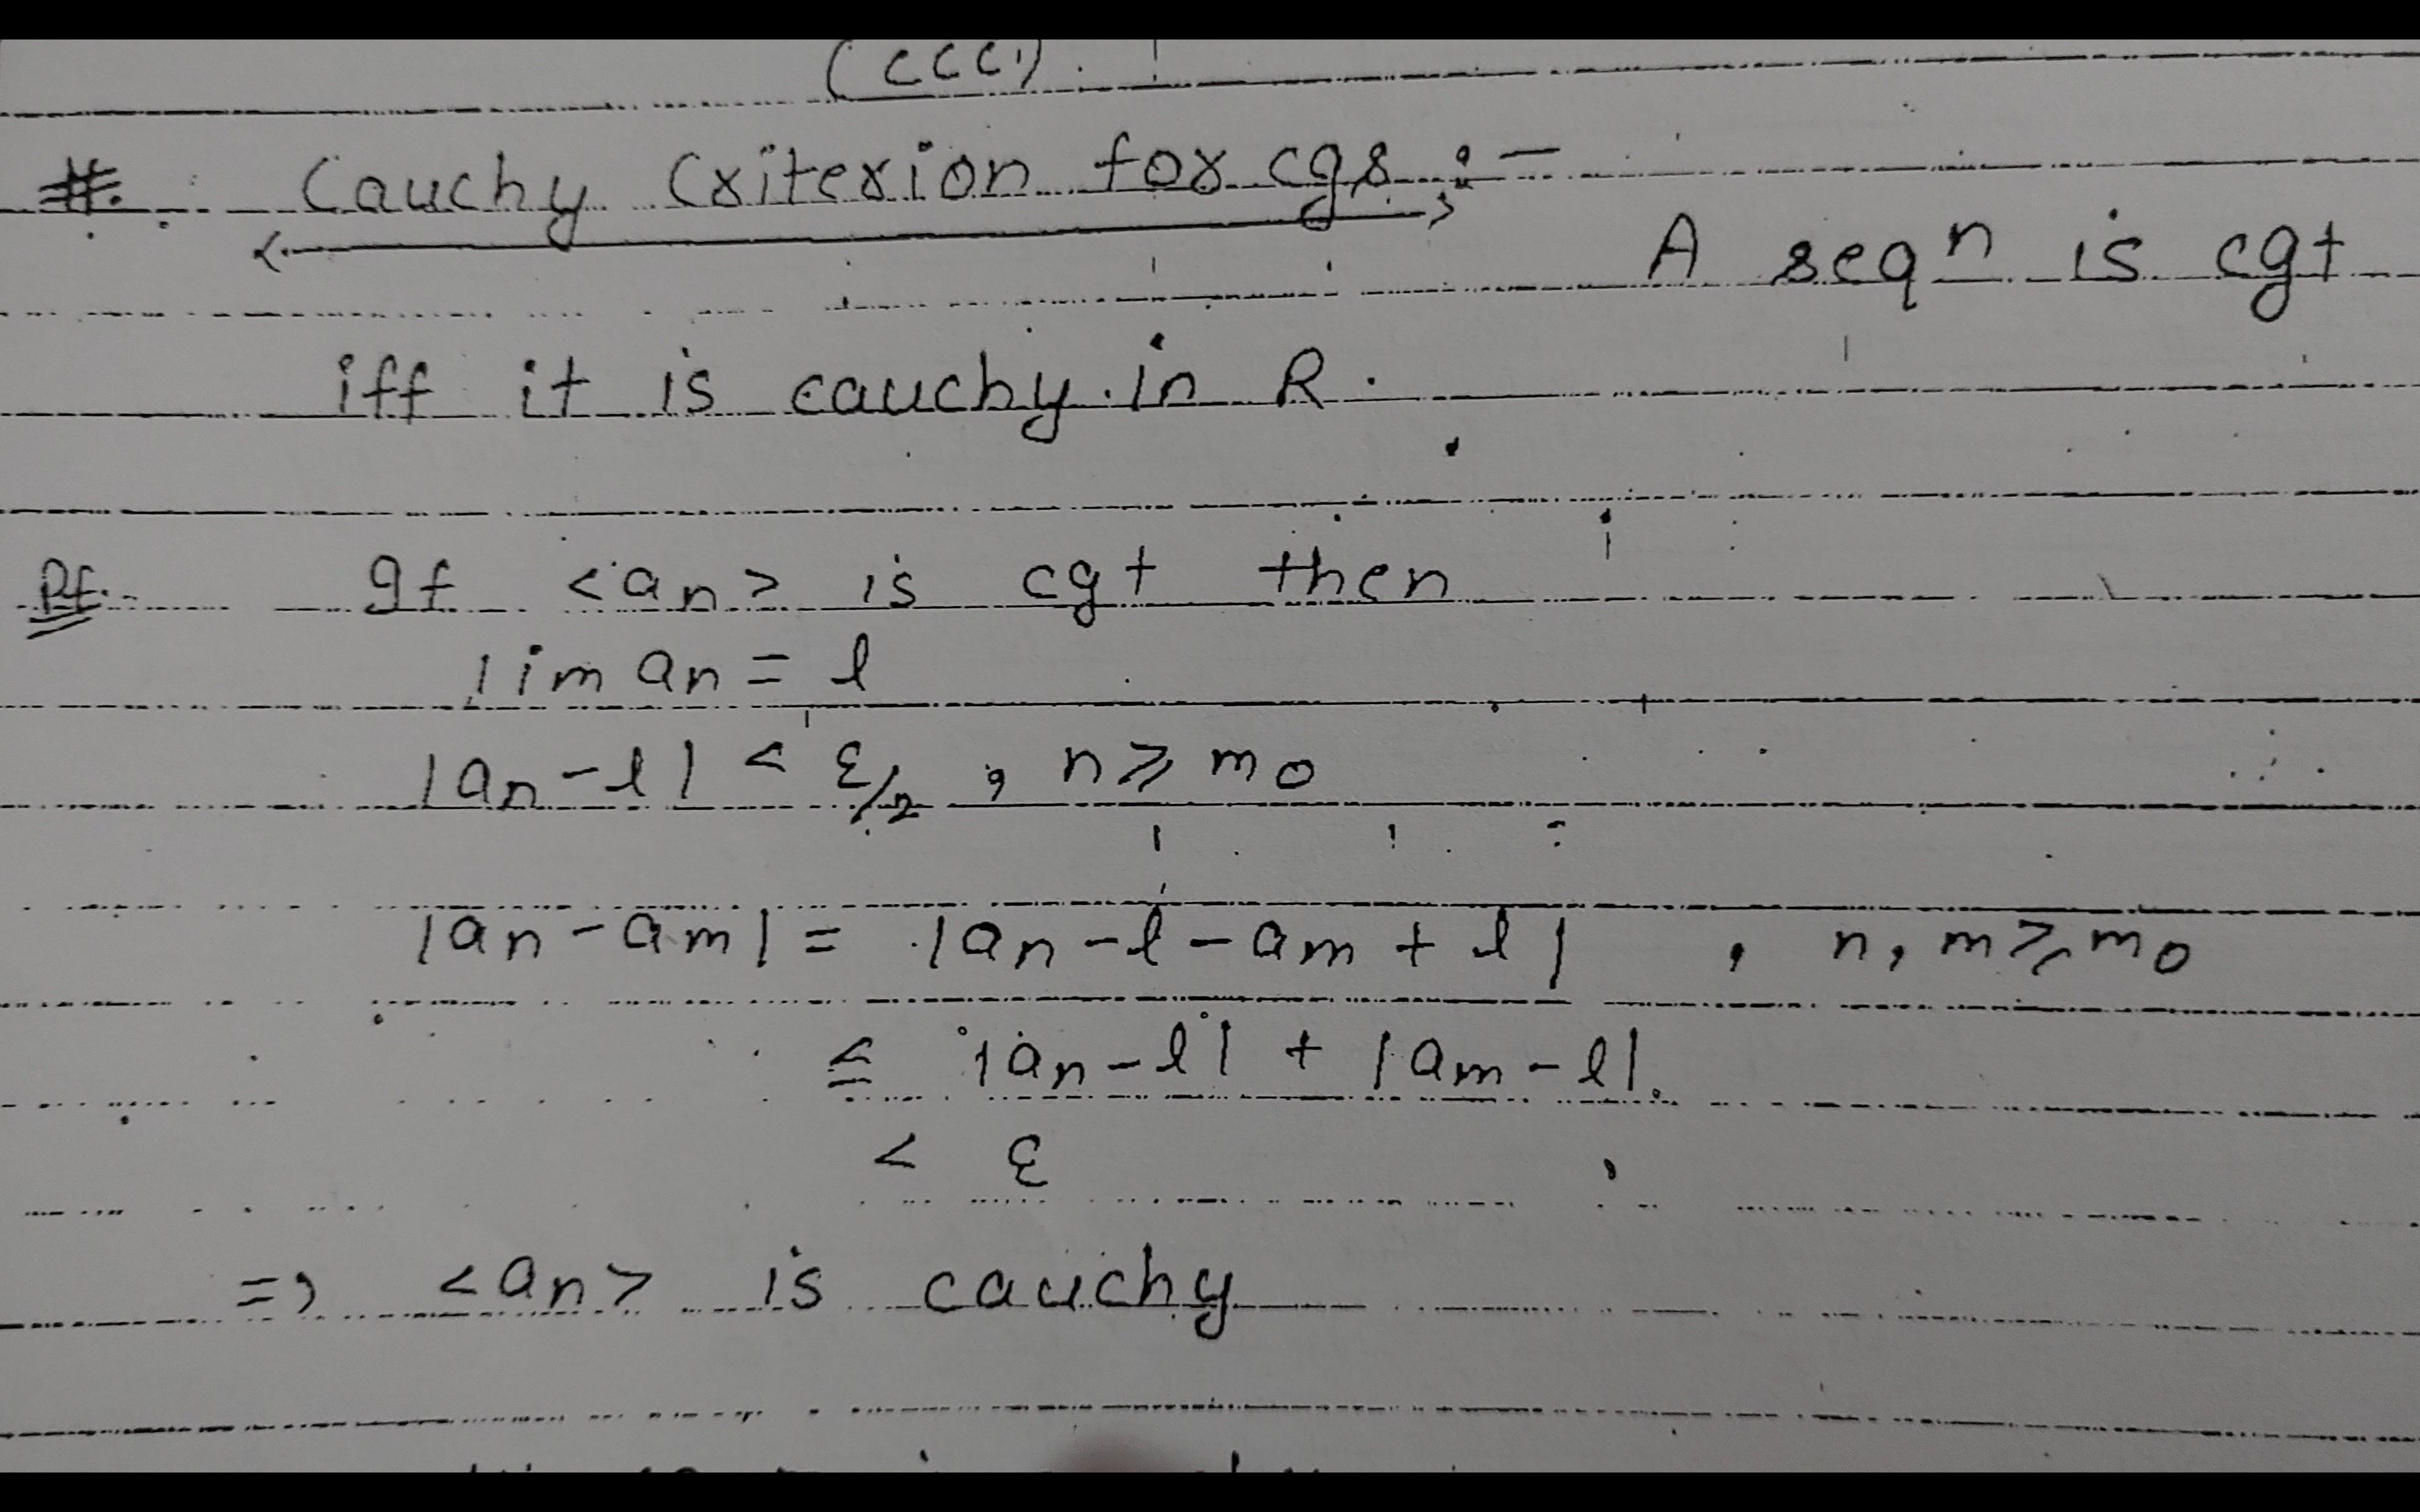 (CCC)
#. Cauchy Criterion for cgs :-
A seqⁿ is cgt
iff it is cauchy in R.
Pf. If <an> is cgt then
lim an = l
|an - l| < ε/2 , n ≥ m0
|an - am| = |an - l - am + l| , n, m ≥ m0
≤ |an - l| + |am - l|
< ε
=> <an> is cauchy